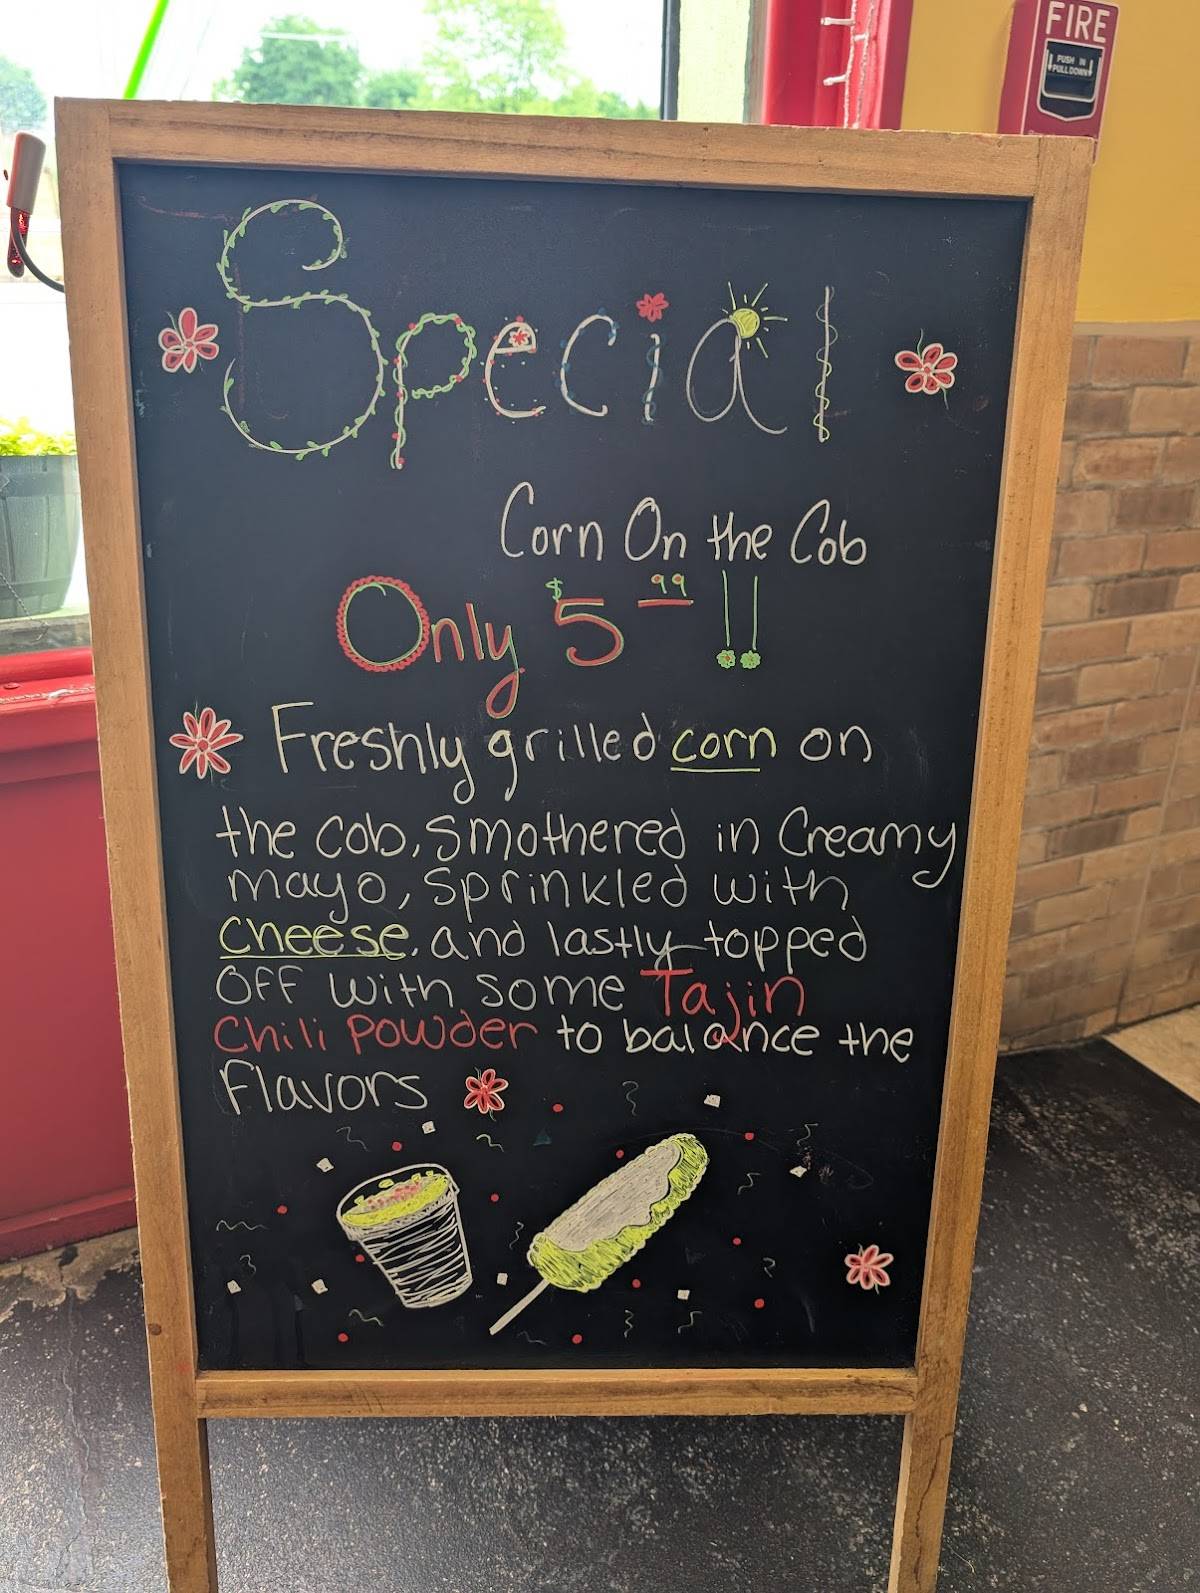 FIRE
PUSH IN
PULL DOWN
Special
Corn On the Cob
Only $5.99 !!
Freshly grilled corn on
the cob, smothered in Creamy
mayo, sprinkled with
Cheese, and lastly topped
OFF with some Tajin
Chili Powder to balance the
Flavors